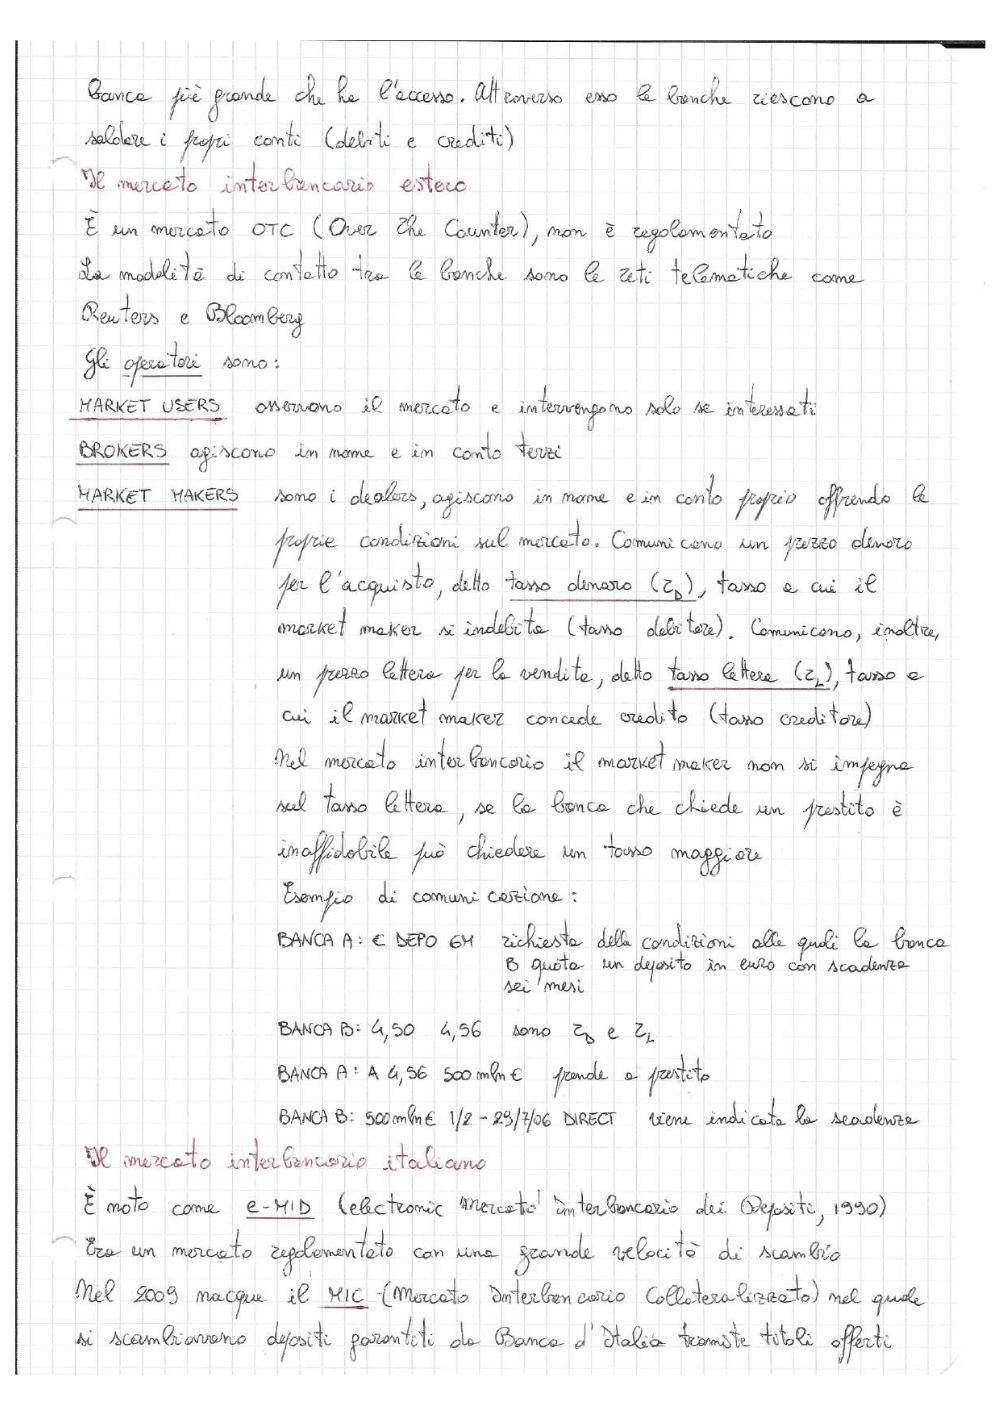 banca più grande che ha l'accesso. Attraverso esso le banche riescono a
saldare i propri conti (debiti e crediti)
Il mercato interbancario estero
È un mercato OTC (Over The Counter), non è regolamentato
La modalità di contatto tra le banche sono le reti telematiche come
Reuters e Bloomberg
Gli operatori sono:
MARKET USERS osservano il mercato e intervengono solo se interessati
BROKERS agiscono in nome e in conto terzi
MARKET MAKERS sono i dealers, agiscono in nome e in conto proprio offrendo le
proprie condizioni sul mercato. Comunicano un prezzo denaro
per l'acquisto, detto tasso denaro (r_D), tasso a cui il
market maker si indebita (tasso debitore). Comunicano, inoltre,
un prezzo lettera per la vendita, detto tasso lettera (r_L), tasso a
cui il market maker concede credito (tasso creditore)
Nel mercato interbancario il market maker non si impegna
sul tasso lettera, se la banca che chiede un prestito è
inaffidabile può chiedere un tasso maggiore
Esempio di comunicazione:
BANCA A: € DEPO 6M richiesta delle condizioni alle quali la banca
B quota un deposito in euro con scadenza
sei mesi
BANCA B: 4,50 4,56 sono r_D e r_L
BANCA A: A 4,56 500 mln € prende a prestito
BANCA B: 500 mln € 1/2 - 29/7/06 DIRECT viene indicata la scadenza
Il mercato interbancario italiano
È noto come e-MID (electronic Mercato Interbancario dei Depositi, 1990)
Era un mercato regolamentato con una grande velocità di scambio
Nel 2009 nacque il MIC (Mercato Interbancario Collateralizzato) nel quale
si scambiavano depositi garantiti da Banca d'Italia tramite titoli offerti